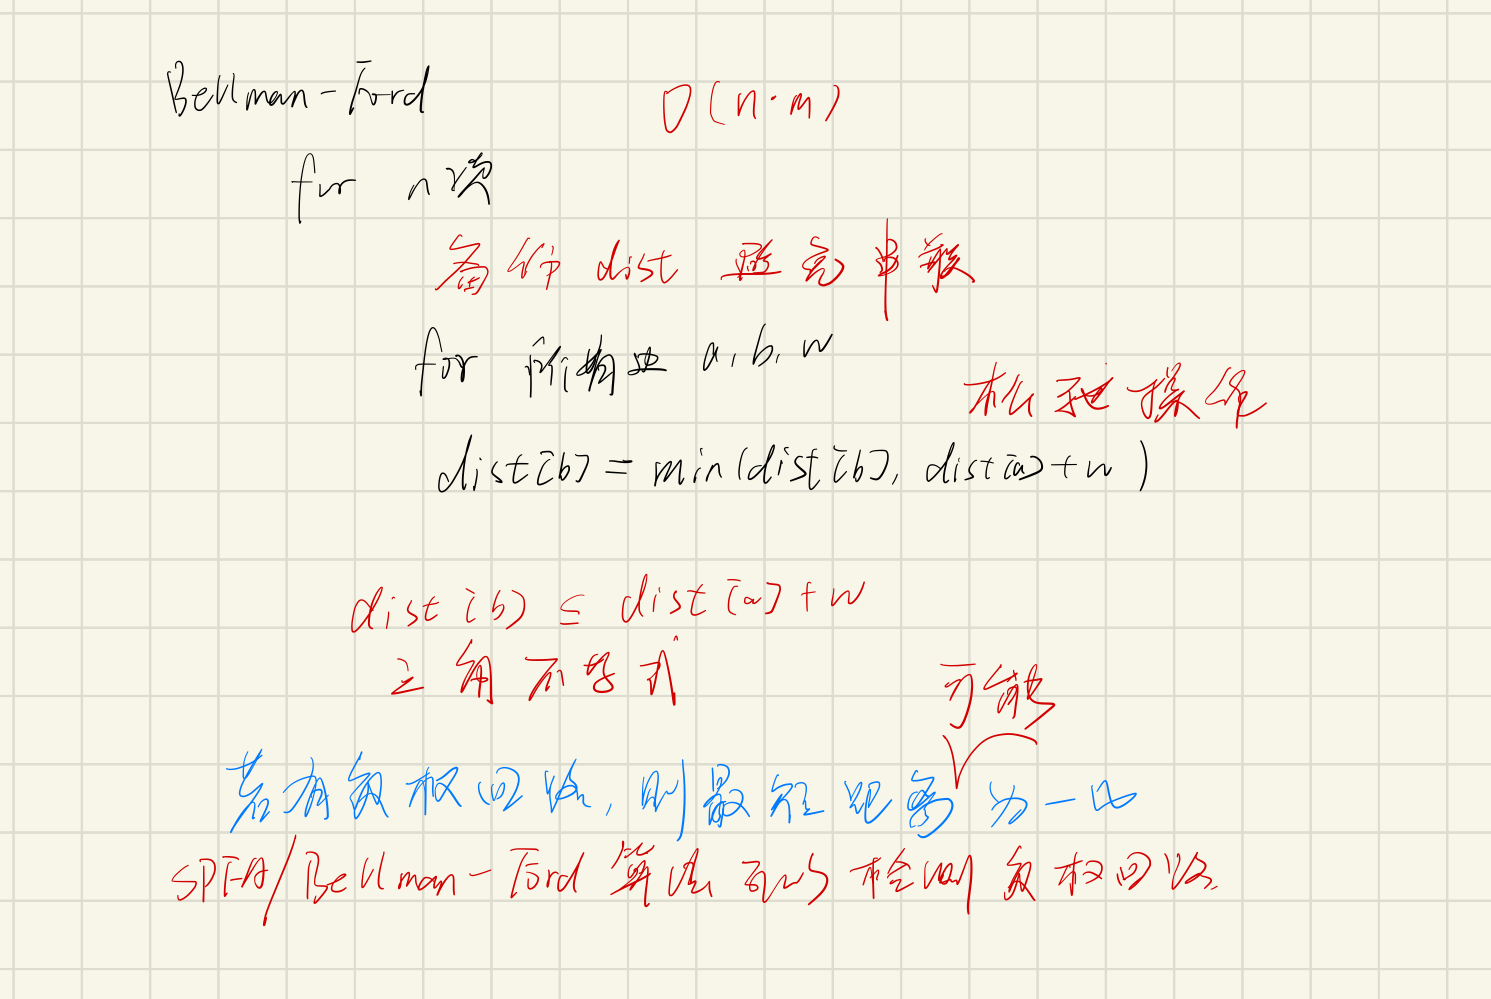 Bellman-Ford O(n·m)
for n次
备份 dist 避免串联
for 所有边 a, b, w
松弛操作
dist[b] = min(dist[b], dist[a]+w)
dist[b] ≤ dist[a]+w
三角不等式
可能
若有负权回路, 则最短距离为-∞
SPFA/Bellman-Ford 算法可以检测负权回路.